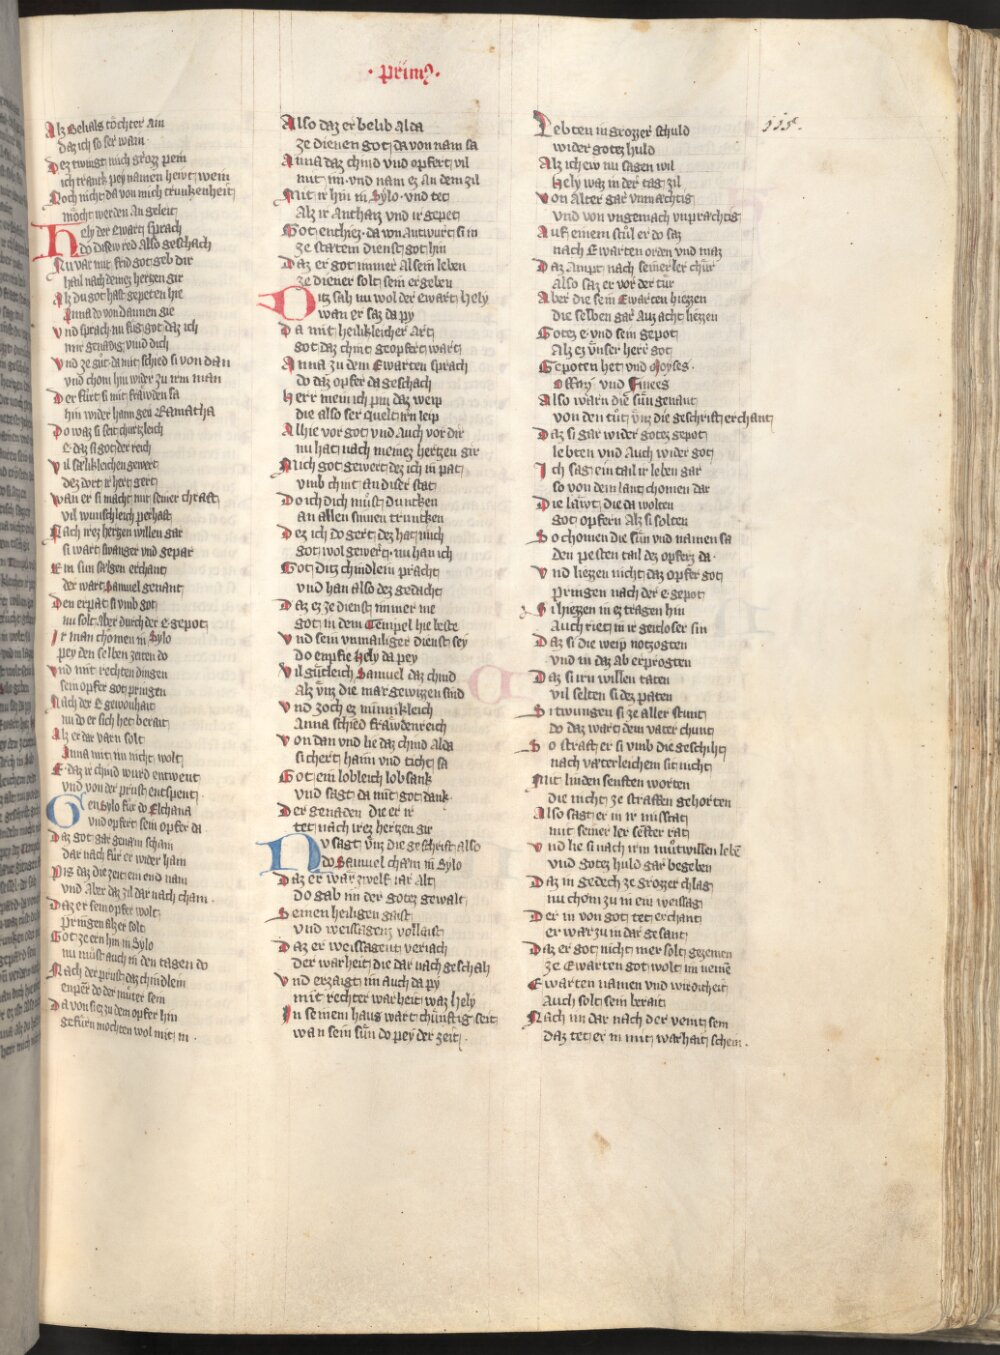 · Prim9 ·
115.
Alz Belials töchter ain
daz ich so ser wain
Dez twingt mich grozz pein
ich tranck pey namen hewt wein
Noch nicht da von mich trunkenheit
möcht werden an geleit
Hely der Ewart sprach
do diser red also geschach
Nu var mit frid got geb dir
hail nach deines hertzen gir
Alz du got hast gepeten hie
Anna do von dannen gie
Vnd sprach nu füg got daz ich
mir genadig vind dich
Vnd ze güt da mit schied si von dan
vnd chom hin wider zu irm man
Der fürt si mit frawden sa
hin wider haim gen Ramatha
Do waz si seit churtzleich
E daz si got der reich
Vil sälikleichen gewert
dez dort ir hertz gert
Wan er si macht mit seiner chraft
vil wunschleich perhaft
Nach irez hertzen willen gar
si wart swanger vnd gepar
Ein sun säligen erchant
der wart Samuel genant
Den erpat si vmb got
nu solt aber durch der e gepot
Ir man chomen in Sylo
pey den selben zeiten do
Vnd mit rechten dingen
sein opfer got pringen
Nach der E gewonhait
nu do er sich het berait
Alz er dar varn solt
Anna mit im nicht wolt
E · daz ir chind wurd entwent
vnd von der prust entspent ·
Gen Sylo für do Elchana
vnd opfert sein opfer da
Daz got gar genam scham
dar nach für er wider ham
Piz daz die zeit ein end nam
vnd aber daz zil dar nach cham ·
Daz er sein opfer wolt
pringen alz er solt
Got ze ern hin in Sylo
nu müst auch in den tagen do
Nach der prust daz chindlein
enpern do der müter sein
Da von si ez zu dem opfer hin
gefürn mochten wol mit in ·
Also daz er belib alda
ze dienen got da von nam sa
Anna daz chind vnd opfert vil
mit im · vnd nam ez an dem zil
Mit ir hin in Sylo · vnd tet
Alz ir antheiz vnd ir gepet
Got enthiez · da von antwurt si in
ze stätem dienst got hin
Daz er got immer al sein leben
ze diener solt sein ergeben
Ditz sah nu wol der ewart hely
wan er saz da py
Da mit heilikleicher art
got daz chint geopfert wart
Anna zu dem Ewarten sprach
do daz opfer da geschach
Herr mein ich pin daz weip
die also ser quelt irn leip
Alhie vor got vnd auch vor dir
nu hat nach meines hertzen gir
Mich got gewert dez ich in pat
vmb chint an diser stat
Do ich dich müst duncken
an allen sinnen truncken
Dez ich do gert dez hat mich
got wol gewert · nu han ich
Got ditz chindlein pracht
vnd han also dez gedacht
Daz ez ze dienst immer me
got in dem Tempel hie beste
Vnd sein vnmailiger dienst sey
do enpfie hely da pey
Vil gütleich Samuel daz chind
Alz vns die mär gewizzen sind
Vnd zoch ez minnikleich
Anna schied frawdenreich
Von dan vnd lie daz chind alda
si chert haim vnd ticht sa
Got ein lobleich lobsank
vnd sagt da mit got dank ·
Der genaden die er ir
tet nach irez hertzen gir
Nu sagt vns die geschrift also
do Samuel cham in Sylo
Daz er war zwelf iar alt
do gab im der gotez gewalt
Seinen heiligen gaist
vnd weissagens vollaist
Daz er weissagent veriach
der warheit die dar nach geschah
Vnd erzaigt im auch da py
mit rechter warheit waz hely
In seinem haus wart chünftig seit
wan sein sün do pey der zeit ·
Lebten in grozzer schuld
wider gotez huld
Alz ich ew nu sagen wil
hely waz in der tag zil
Von alter gar vnmächtig
vnd von vngemach vnprachtig
Auf einem stül er do saz
nach Ewarten orden vnd maz
Daz Ampt nach seiner ler chür
also saz er vor der tür
Aber die sein Ewarten hiezzen
die selben gar auz acht liezzen
Gotez e · vnd sein gepot
Alz ez vnser herr got
Gepoten het vnd Moyses ·
Offny vnd Finees
Also warn die sün genant
von den tüt vns die geschrift erchant
Daz si gar wider gotez gepot
lebten vnd auch wider got
Ich sag ein tail ir leben gar
so von dem lant chomen dar
Die läwt die da wolten
got opfern alz si solten
So chomen die sün vnd namen sa
den pesten tail dez opfers da ·
Vnd liezzen nicht daz opfer got
pringen nach der e gepot
Si hiezzen in ez tragen hin
Auch riet in ir geitloser sin
Daz si die weip notzogten
vnd in daz ab erprogten
Daz si irn willen täten
vil selten si dez päten
Si twungen si ze aller stunt
do daz wart dem vater chunt
So straft er si vmb die geschiht
nach väterleichem sit nicht
Mit linden senften worten
die nicht ze straffen gehorten
Also sagt er in ir missetat
mit seiner ler senfter rat
Vnd lie si nach irm mütwillen lebē
vnd gotez huld gar begeben
Daz in gedech ze grozzer chlag
nu chom zu in ein weissag
Der in von got tet erchant
er war zu in dar gesant
Daz er got nicht mer solt gezemen
ze Ewarten got wolt im nemē
Ewarten namen vnd wirdicheit
Auch solt sein berait
Nach im dar nach der veint sein
daz tet er in mit warhait schein ·